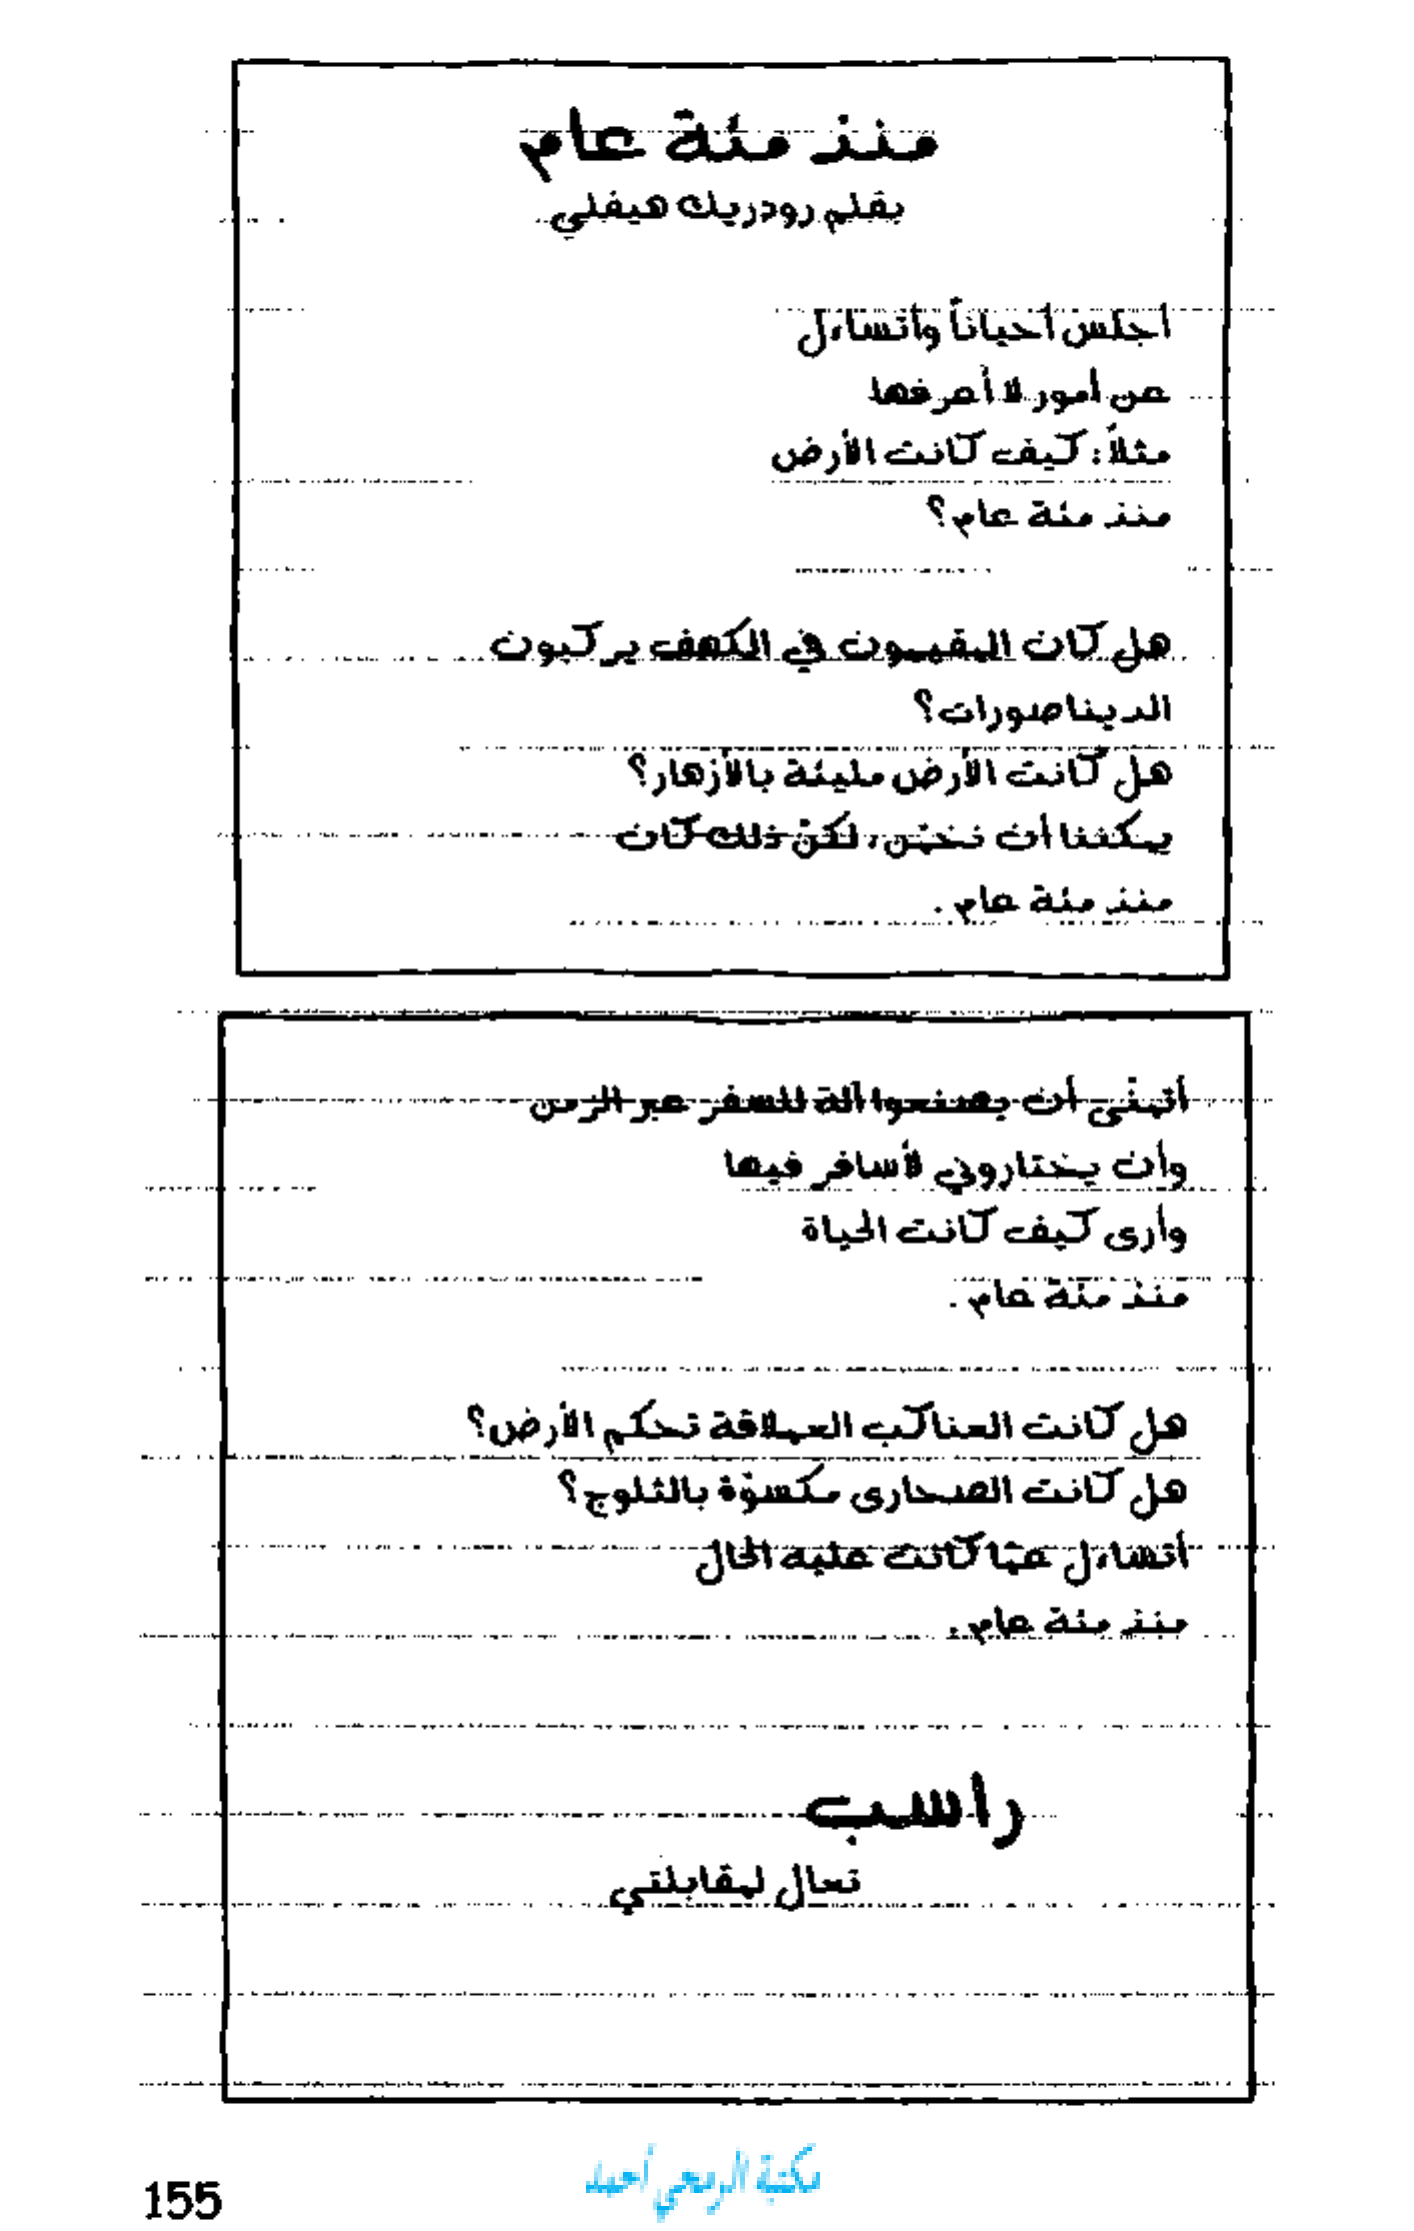 منذ مئة عام
بقلم رودريك هيفلي
أجلس أحياناً وأتساءل
عن أمور لا أعرفها
مثلاً: كيف كانت الأرض
منذ مئة عام؟
هل كان المقيمون في الكهف يركبون
الديناصورات؟
هل كانت الأرض مليئة بالأزهار؟
يمكننا أن نخمّن، لكنّ ذلك كان
منذ مئة عام.
أتمنّى أن يصنعوا آلة للسفر عبر الزمن
وأن يختاروني لأسافر فيها
وأرى كيف كانت الحياة
منذ مئة عام.
هل كانت العناكب العملاقة تحكم الأرض؟
هل كانت الصحارى مكسوّة بالثلوج؟
أتساءل عمّا كانت عليه الحال
منذ مئة عام.
راسب
تعال لمقابلتي
مكتبة الرمحي أحمد
155